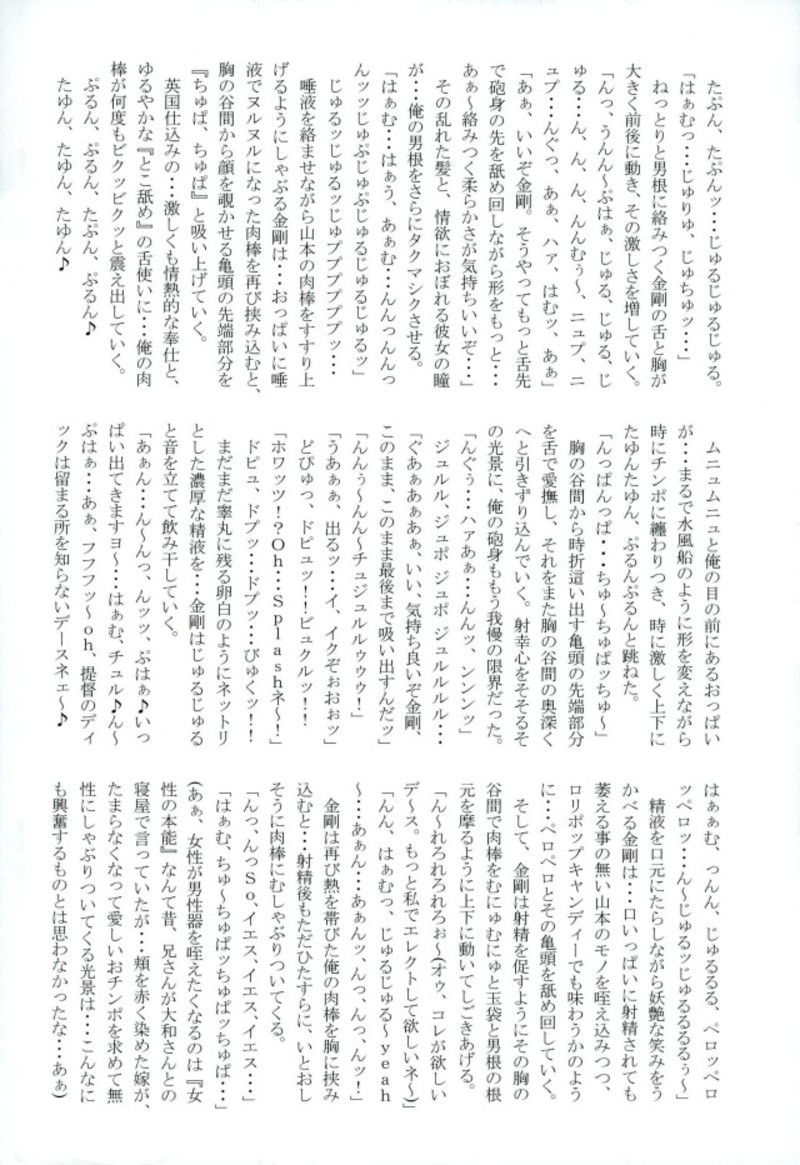 たぷん、たぷんッ・・・じゅるじゅるじゅる。
「はぁむっ・・・じゅりゅ、じゅちゅッ・・・」
ねっとりと男根に絡みつく金剛の舌と胸が
大きく前後に動き、その激しさを増していく。
「んっ、うんん～ぷはぁ、じゅる、じゅる、じ
ゅる・・・ん、ん、ん、んんむぅ～、ニュプ、ニ
ュプ・・・んぐっ、あぁ、ハァ、はむッ、あぁ」
「あぁ、いいぞ金剛。そうやってもっと舌先
で砲身の先を舐め回しながら形をもっと・・・
あぁ～絡みつく柔らかさが気持ちいいぞ・・・」
その乱れた髪と、情欲におぼれる彼女の瞳
が・・・俺の男根をさらにタクマシクさせる。
「はぁむ・・・はぁう、あぁむ・・・んんっんんっ
んッッじゅぷじゅぷじゅるじゅるじゅるッ」
じゅるッじゅるッじゅプププププッ・・・
唾液を絡ませながら山本の肉棒をすすり上
げるようにしゃぶる金剛は・・・おっぱいに唾
液でヌルヌルになった肉棒を再び挟み込むと、
胸の谷間から顔を覗かせる亀頭の先端部分を
『ちゅぱ、ちゅぱ』と吸い上げていく。
英国仕込みの・・・激しくも情熱的な奉仕と、
ゆるやかな『とこ舐め』の舌使いに・・・俺の肉
棒が何度もビクッビクッと震え出していく。
ぷるん、ぷるん、たぷん、ぷるん♪
たゆん、たゆん、たゆん♪
ムニュムニュと俺の目の前にあるおっぱい
が・・・まるで水風船のように形を変えながら
時にチンポに纏わりつき、時に激しく上下に
たゆんたゆん、ぷるんぷるんと跳ねた。
「んっぱんっぱ・・・ちゅ～ちゅぱッちゅ～」
胸の谷間から時折這い出す亀頭の先端部分
を舌で愛撫し、それをまた胸の谷間の奥深く
へと引きずり込んでいく。射幸心をそそるそ
の光景に、俺の砲身ももう我慢の限界だった。
「んぐぅ・・・ハァあぁ・・・んんッ、ンンンッ」
ジュルル、ジュポ ジュポ ジュルルルル・・・
「ぐあぁあぁあぁ、いい、気持ち良いぞ金剛、
このまま、このまま最後まで吸い出すんだッ」
「んんぅ～んん～チュジュルルゥゥゥ！」
「うあぁぁ、出るッ・・・イ、イクぞぉおぉッ」
どぴゅっ、ドピュッ！！ビュクルッ！！！
「ホワッツ！？Oh・・・Splashネ～！」
ドピュ、ドプッ・・・ドプッ・・・びゅくッ！！！
まだまだ睾丸に残る卵白のようにネットリ
とした濃厚な精液を・・・金剛はじゅるじゅる
と音を立てて飲み干していく。
「あぁん・・・ん～んっ、んッッ、ぷはぁ♪いっ
ぱい出てきますヨ～・・・はぁむ、チュル♪ん～
ぷはぁ・・・あぁ、フフフッ～oh、提督のディ
ックは留まる所を知らないデースネェ～♪
はぁぁむ、つんん、じゅるるる、ペロッペロ
ッペロッ・・・ん～じゅるッじゅるるるるぅ～」
精液を口元にたらしながら妖艶な笑みをう
かべる金剛は・・・口いっぱいに射精されても
萎える事の無い山本のモノを咥え込みつつ、
ロリポップキャンディーでも味わうかのよう
に・・・ペロペロとその亀頭を舐め回していく。
そして、金剛は射精を促すようにその胸の
谷間で肉棒をむにゅむにゅと玉袋と男根の根
元を摩るように上下に動いてしごきあげる。
「ん～れろれろれろぉ～（オゥ、コレが欲しい
デース。もっと私でエレクトして欲しいネ～）」
「んん、はぁむっ、じゅるじゅる～yeah
～・・・あぁん・・・あぁんッ、んっ、んっ、んッ！」
金剛は再び熱を帯びた俺の肉棒を胸に挟み
込むと・・・射精後もただひたすらに、いとおし
そうに肉棒にむしゃぶりついてくる。
「んっ、んっSo、イエス、イエス、イエス・・・」
「はぁむ、ちゅ～ちゅぱッちゅぱッちゅぱ・・・」
(あぁ、女性が男性器を咥えたくなるのは『女
性の本能』なんて昔、兄さんが大和さんとの
寝屋で言っていたが・・・頬を赤く染めた嫁が、
たまらなくなって愛しいおチンポを求めて無
性にしゃぶりついてくる光景は・・・こんなに
も興奮するものとは思わなかったな・・・あぁ)